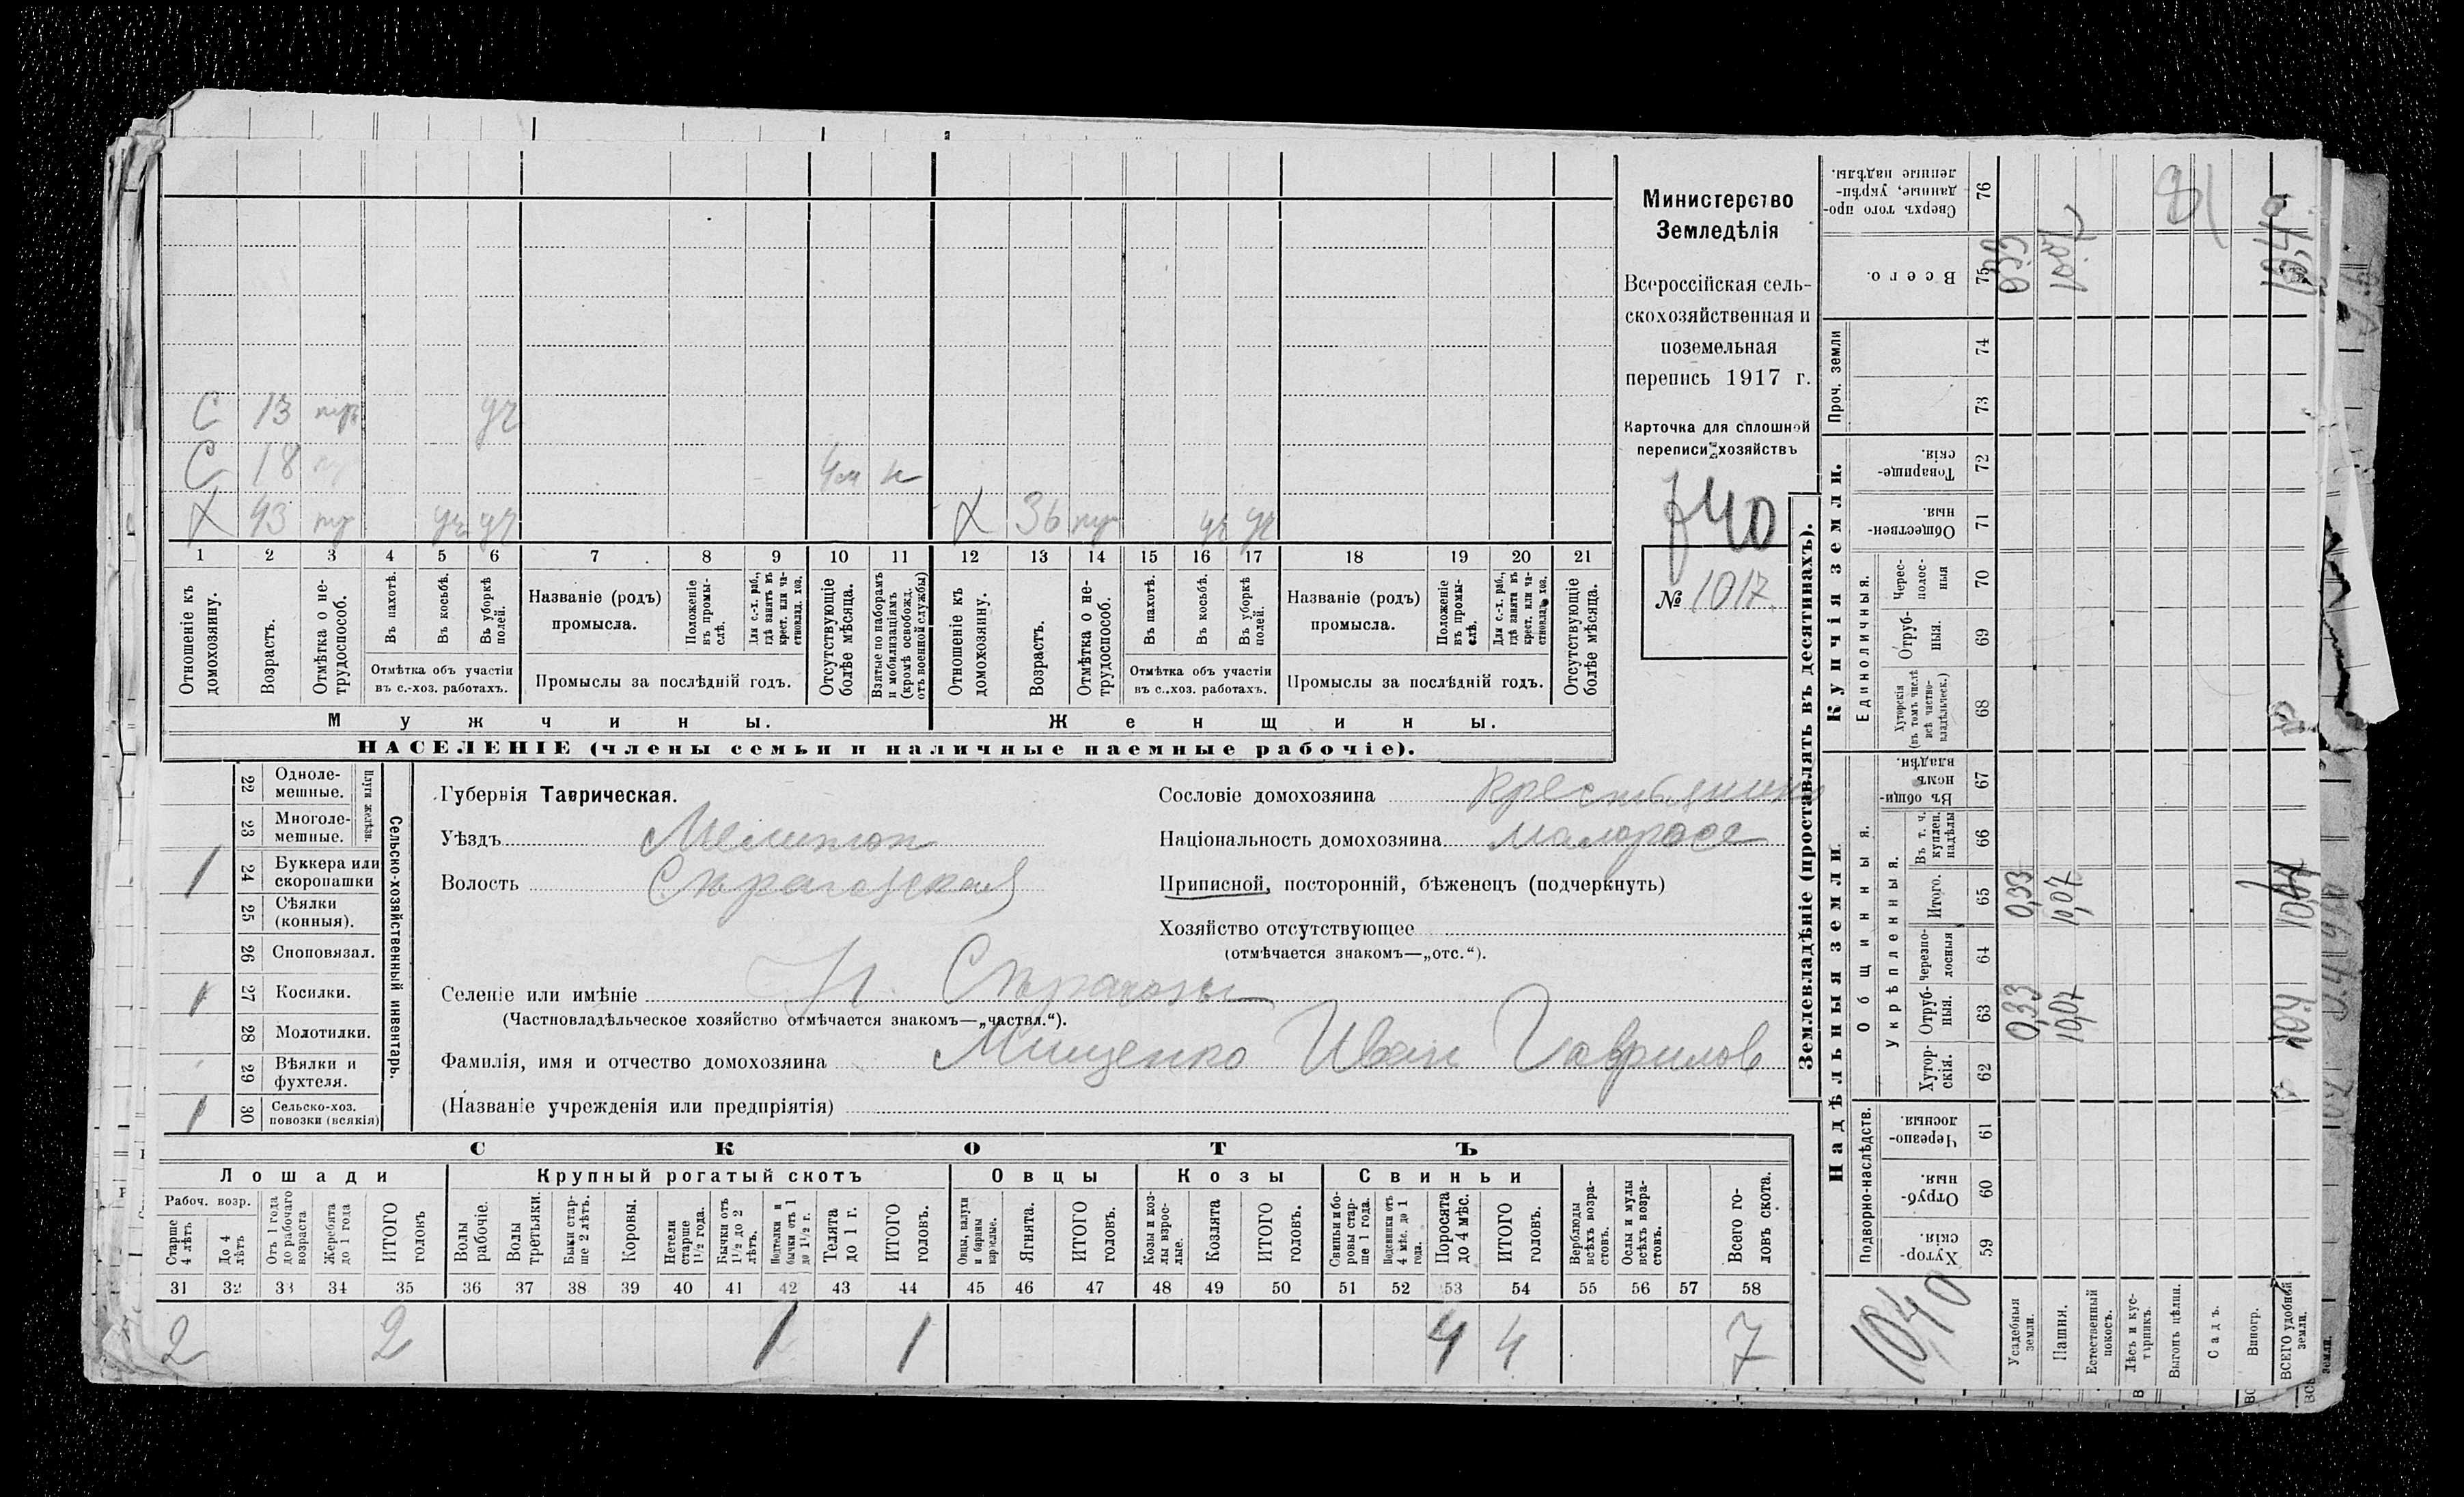 С 13 тр уч
С 18 4м н
Х 43 тр уч уч Х 36 тр уч уч
1 2 3 4 5 6 7 8 9 10 11 12 13 14 15 16 17 18 19 20 21
Отношеніе къ домохозяину.
Возрастъ.
Отмѣтка о не-трудоспособ.
Въ пахотѣ.
Въ косьбѣ.
Въ уборкѣ полей.
Отмѣтка объ участіи
въ с.-хоз. работахъ.
Названіе (родъ)
промысла.
Положеніе въ промы-слѣ.
Для с.-х. раб., гдѣ занятъ въ крест. или ча-стновлад. хоз.
Промыслы за послѣдній годъ.
Отсутствующіе болѣе мѣсяца.
Взятые по наборамъ и мобилизаціямъ (кромѣ освобожд. отъ военной службы)
Отношеніе къ домохозяину.
Возрастъ.
Отмѣтка о не-трудоспособ.
Въ пахотѣ.
Въ косьбѣ.
Въ уборкѣ полей.
Отмѣтка объ участіи
въ с.-хоз. работахъ.
Названіе (родъ)
промысла.
Положеніе въ промы-слѣ.
Для с.-х. раб., гдѣ занята въ крест. или ча-стновлад. хоз.
Промыслы за послѣдній годъ.
Отсутствующіе болѣе мѣсяца.
Мужчины. Женщины.
НАСЕЛЕНІЕ (члены семьи и наличные наемные рабочіе).
Министерство
Земледѣлія
Всероссійская сель-
скохозяйственная и
поземельная
перепись 1917 г.
Карточка для сплошной
переписи хозяйствъ
740
№ 1017
22 Одноле-мешные.
23 Многоле-мешные.
Плуги желѣзн.
1 24 Буккера или скоропашки
25 Сѣялки (конныя).
26 Сноповязал.
1 27 Косилки.
28 Молотилки.
29 Вѣялки и фухтеля.
1 30 Сельско-хоз. повозки (всякія)
Сельско-хозяйственный инвентарь.
Губернія Таврическая.
Уѣздъ Мелитоп
Волость Сѣрогозская
Селеніе или имѣніе Н. Сѣрогозы
(Частновладѣльческое хозяйство отмѣчается знакомъ—„частвл.“).
Фамилія, имя и отчество домохозяина Мищенко Иван Гаврилов
(Названіе учрежденія или предпріятія)
Сословіе домохозяина крестьянин
Національность домохозяина малоросс
Приписной, посторонній, бѣженецъ (подчеркнуть)
Хозяйство отсутствующее
(отмѣчается знакомъ—„отс.“).
СКОТЪ
Лошади Крупный рогатый скотъ Овцы Козы Свиньи
Рабоч. возр.
Старше 4 лѣтъ
До 4 лѣтъ
Отъ 1 года до рабочаго возраста
Жеребята до 1 года
ИТОГО головъ
Волы рабочіе.
Волы третьяки.
Быки стар-ше 2 лѣтъ.
Коровы.
Нетели старше 1½ года.
Бычки отъ 1½ до 2 лѣтъ.
Подтелки и бычки отъ 1 до 1½ г.
Телята до 1 г.
ИТОГО головъ.
Овцы, валухи и бараны взрослые.
Ягнята.
ИТОГО головъ.
Козы и коз-лы взрос-лые.
Козлята
ИТОГО головъ.
Свиньи и бо-ровы стар-ше 1 года.
Подсвинки отъ 4 мѣс. до 1 года.
Поросята до 4 мѣс.
ИТОГО головъ.
Верблюды всѣхъ возра-стовъ.
Ослы и мулы всѣхъ возра-стовъ.
Всего го-ловъ скота.
31 32 33 34 35 36 37 38 39 40 41 42 43 44 45 46 47 48 49 50 51 52 53 54 55 56 57 58
2 2 1 1 4 4 7
Землевладѣніе (проставлять въ десятинахъ).
Надѣльныя земли Купчія земли. Проч. земли
Подворно-наслѣдств. Общинныя. Единоличныя.
Укрѣпленныя.
Хутор-скія. 59
Отруб-ныя. 60
Черезпо-лосныя 61
Хутор-скія. 62
Отруб-ныя. 63
Черезпо-лосныя 64
Итого. 65
Въ т. ч. куплен. надѣлы 66
Въ общин-номъ владѣн. 67
Хуторскія (въ томъ числѣ всѣ частно-владѣльческ.) 68
Отруб-ныя. 69
Черес-полос-ныя 70
Обществен-ныя. 71
Товарище-скія. 72
73
74
Всего. 75
Сверхъ того про-данные, укрѣп-ленные надѣлы. 76
1040
Усадебныя земли. 0,33 0,33 0,33
Пашня. 10,07 10,07 10,07
Естественный покосъ.
Лѣсъ и кус-тарникъ.
Выгонъ цѣлин.
Садъ.
Виногр.
ВСЕГО удобной земли. 10,4 10,4